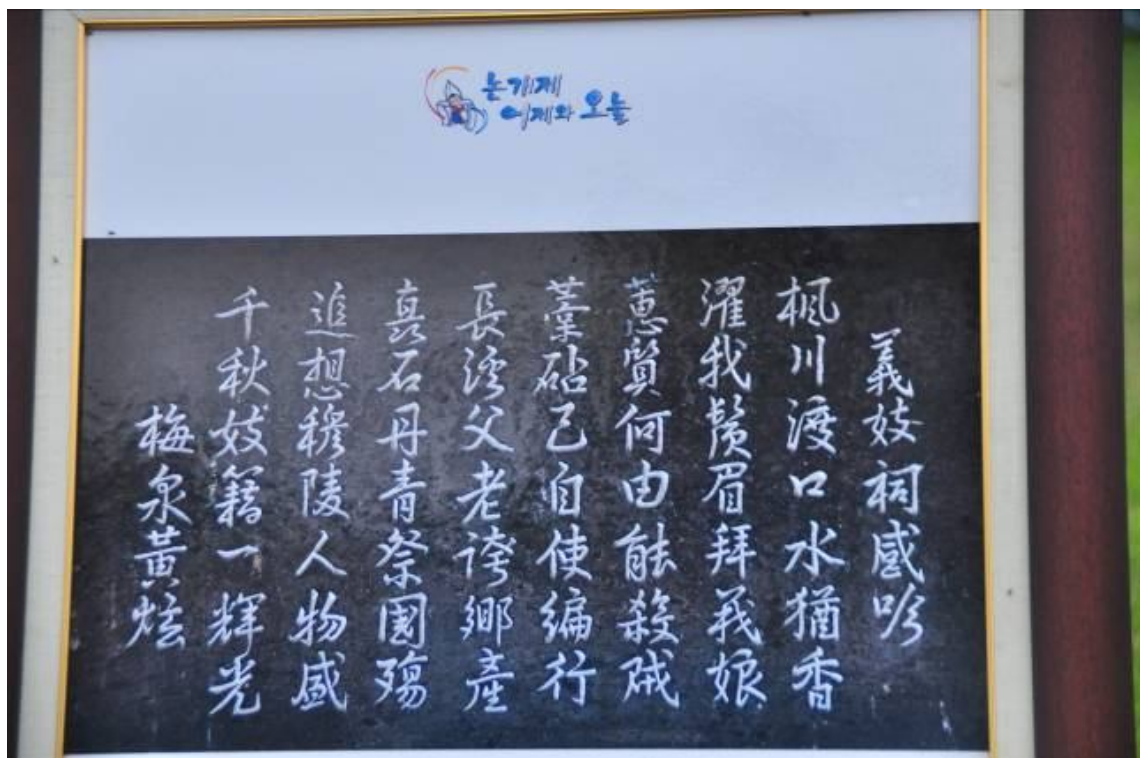 논개제
어제와 오늘
義妓祠感吟
楓川渡口水猶香
濯我鬚眉拜義娘
蕙質何由能殺賊
藁砧已自使編行
長溪父老誇鄕産
矗石丹青祭國殤
追想穆陵人物盛
千秋妓籍一輝光
梅泉黃炫